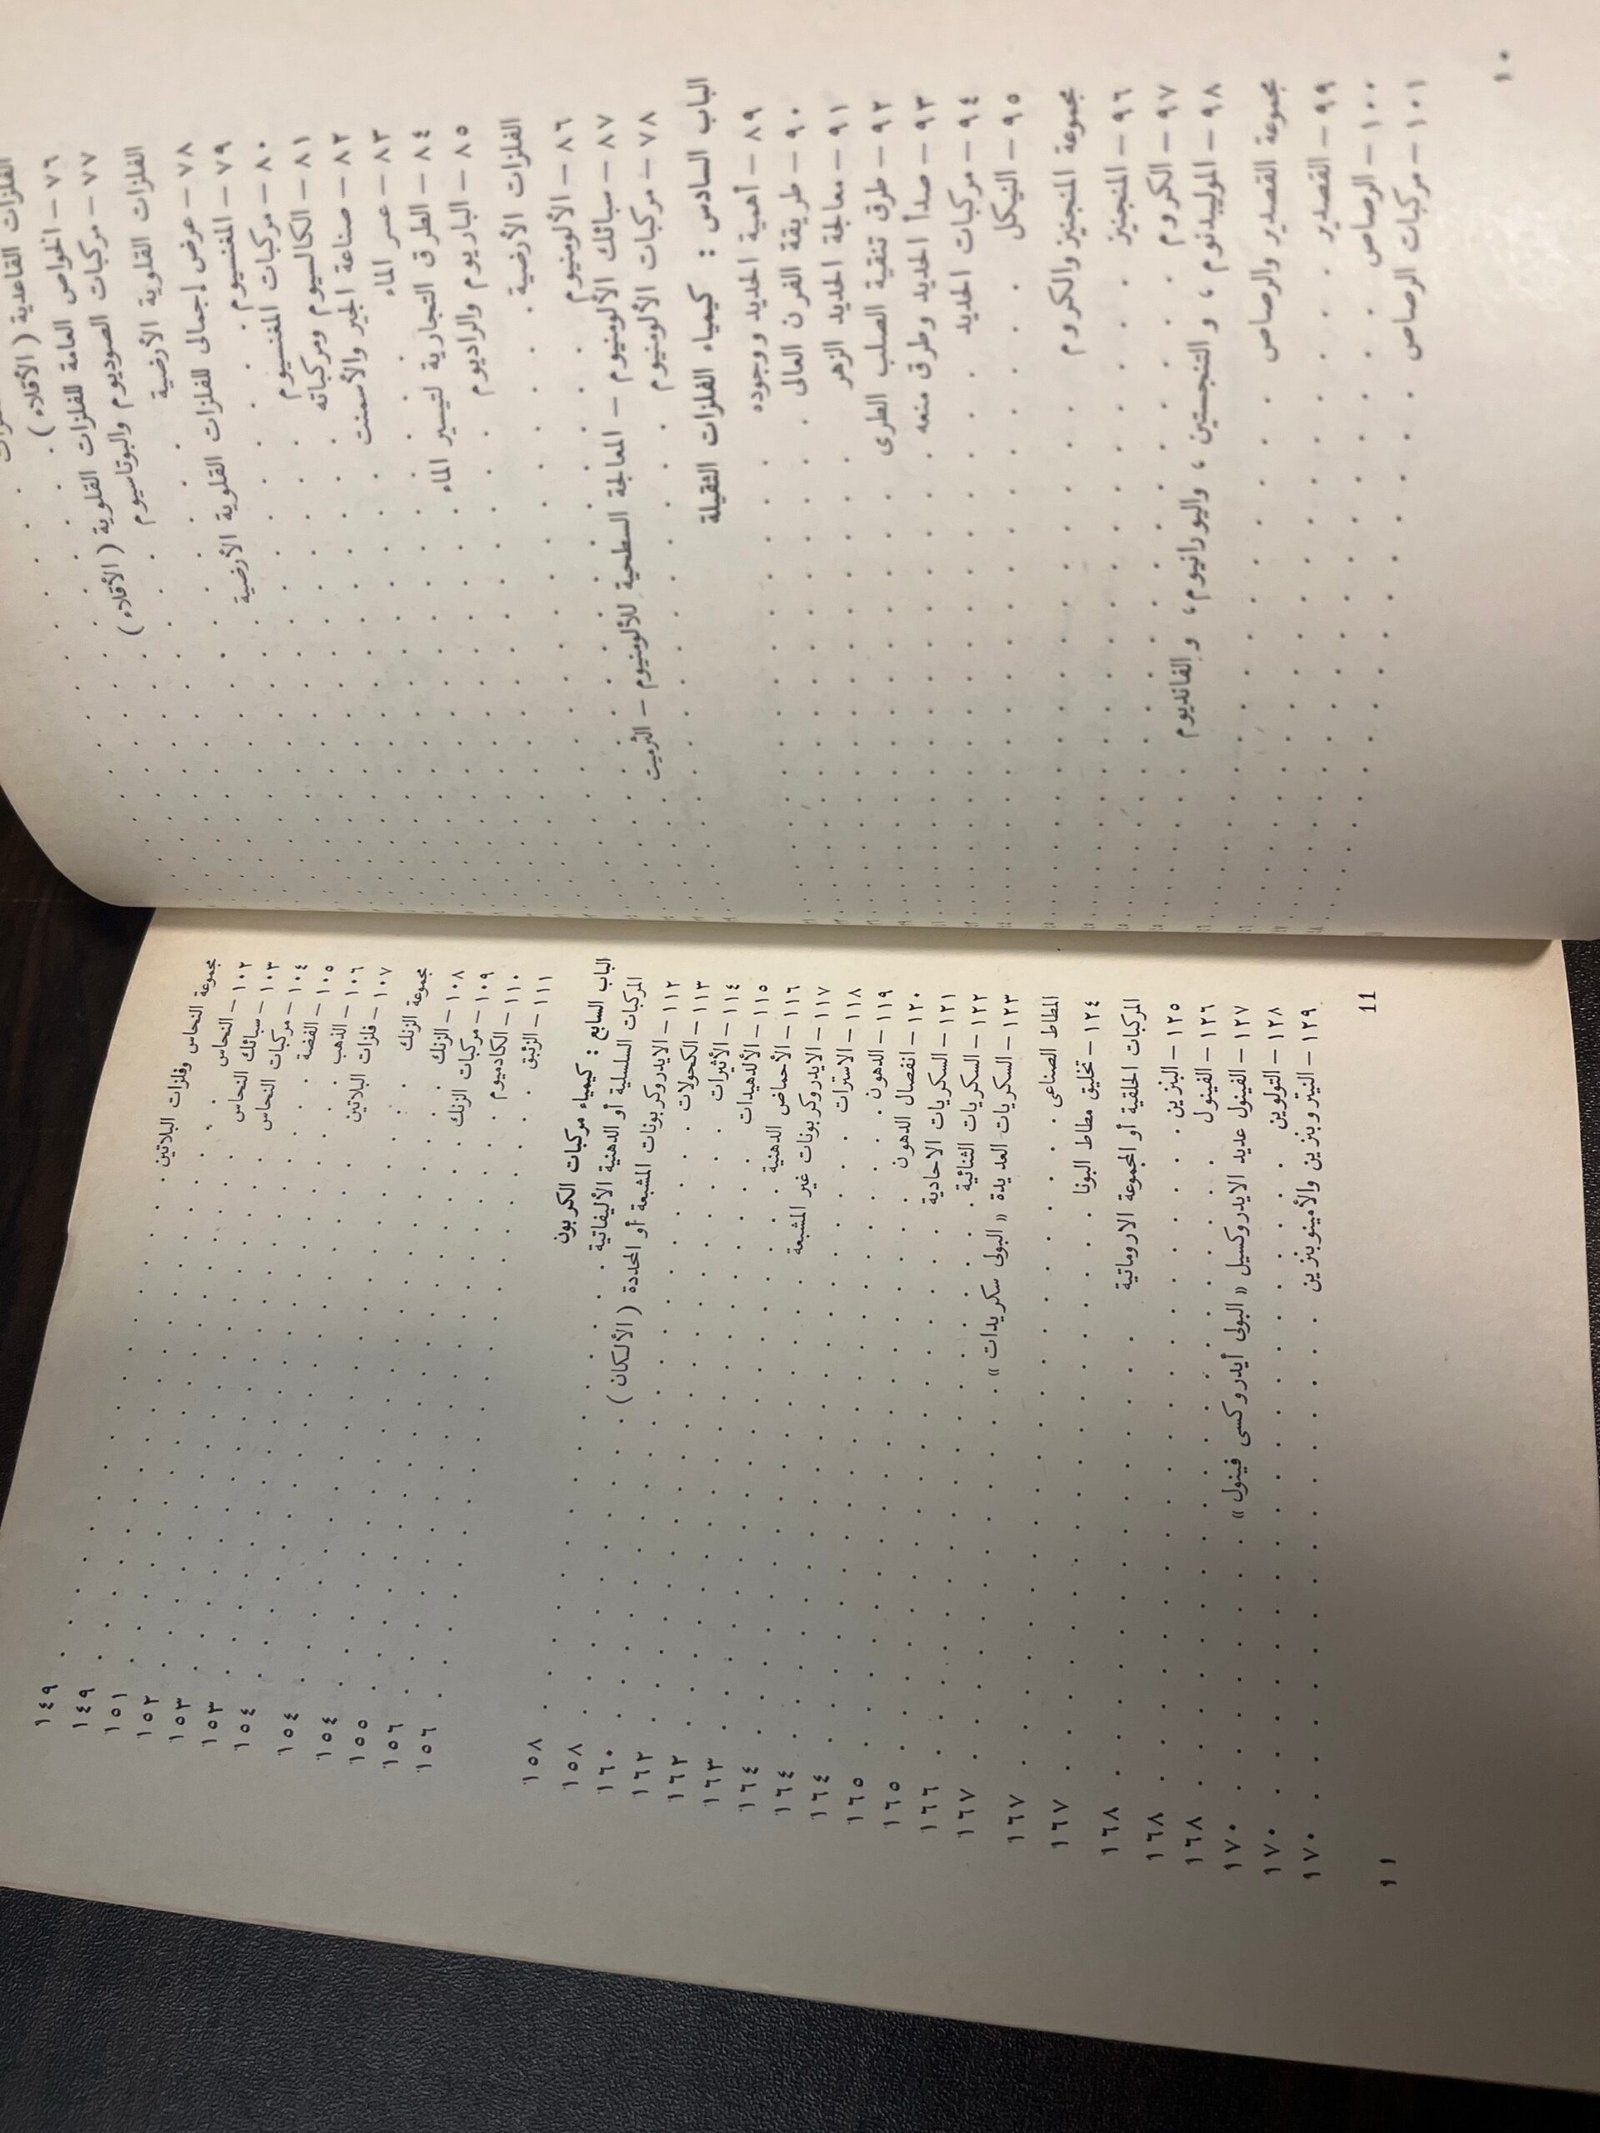 الفلزات القاعدية ( الأقلاء )
٧٦ – الخواص العامة للفلزات القلوية ( الأقلاء )
٧٧ – مركبات الصوديوم والبوتاسيوم
الفلزات القلوية الأرضية
٧٨ – عرض إجمالى للفلزات القلوية الأرضية
٧٩ – المغنسيوم
٨٠ – مركبات المغنسيوم
٨١ – الكالسيوم ومركباته
٨٢ – صناعة الجير والأسمنت
٨٣ – عسر الماء
٨٤ – الطرق التجارية لتيسير الماء
٨٥ – الباريوم والراديوم
الفلزات الأرضية
٨٦ – الألومنيوم
٨٧ – سبائك الألومنيوم – المعالجة السطحية للألومنيوم – الثرميت
٧٨ – مركبات الألومنيوم
الباب السادس : كيمياء الفلزات الثقيلة
٨٩ – أهمية الحديد ووجوده
٩٠ – طريقة الفرن العالى
٩١ – معالجة الحديد الزهر
٩٢ – طرق تنقية الصلب الطرى
٩٣ – صدأ الحديد وطرق منعه
٩٤ – مركبات الحديد
٩٥ – النيكل
مجموعة المنجنيز والكروم
٩٦ – المنجنيز
٩٧ – الكروم
٩٨ – الموليبدنوم ، والتنجستين ، واليورانيوم ، والفانديوم
مجموعة القصدير والرصاص
٩٩ – القصدير
١٠٠ – الرصاص
١٠١ – مركبات الرصاص
١٠
مجموعة النحاس وفلزات البلاتين . . . ١٤٩
١٠٢ – النحاس . . . ١٤٩
١٠٣ – سبائك النحاس . . . ١٥١
١٠٤ – مركبات النحاس . . . ١٥٢
١٠٥ – الفضة . . . ١٥٣
١٠٦ – الذهب . . . ١٥٣
١٠٧ – فلزات البلاتين . . . ١٥٤
مجموعة الزنك . . . ١٥٤
١٠٨ – الزنك . . . ١٥٤
١٠٩ – مركبات الزنك . . . ١٥٥
١١٠ – الكادميوم . . . ١٥٦
١١١ – الزئبق . . . ١٥٦
الباب السابع : كيمياء مركبات الكربون
المركبات السلسلية أو الدهنية الأليفاتية . . . ١٥٨
١١٢ – الايدروكربونات المشبعة أو المحددة ( الألكان ) . . . ١٥٨
١١٣ – الكحولات . . . ١٦٠
١١٤ – الأثيرات . . . ١٦٢
١١٥ – الألدهيدات . . . ١٦٢
١١٦ – الأحماض الدهنية . . . ١٦٣
١١٧ – الايدروكربونات غير المشبعة . . . ١٦٤
١١٨ – الاسترات . . . ١٦٤
١١٩ – الدهون . . . ١٦٤
١٢٠ – انفصال الدهون . . . ١٦٥
١٢١ – السكريات الاحادية . . . ١٦٥
١٢٢ – السكريات الثنائية . . . ١٦٦
١٢٣ – السكريات العديدة « البولى سكريدات » . . . ١٦٧
المطاط الصناعى . . . ١٦٧
١٢٤ – تخليق مطاط البونا . . . ١٦٧
المركبات الحلقية أو المجموعة الاروماتية . . . ١٦٨
١٢٥ – البنزين . . . ١٦٨
١٢٦ – الفينول . . . ١٦٨
١٢٧ – الفينول عديد الايدروكسيل « البولى أيدروكسى فينول » . . . ١٧٠
١٢٨ – التولوين . . . ١٧٠
١٢٩ – النيتروبنزين والأمينوبنزين . . . ١٧٠
11
١١